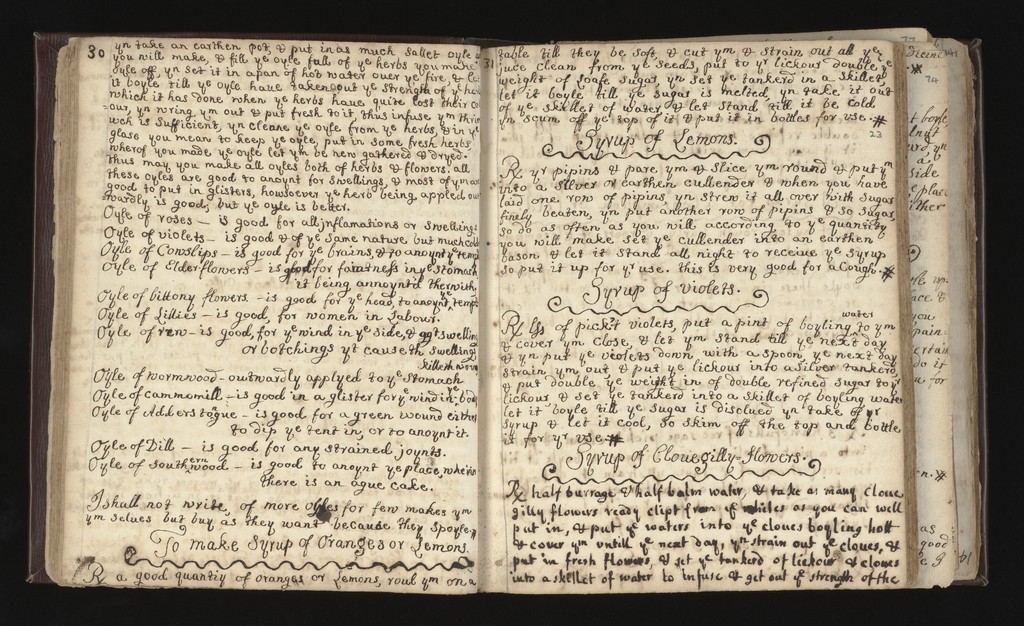 30
yn take an earthen pot, & put in as much sallet oyle
you will make, & fill ye oyle full of ye herbs you ma
oyle off, yn set it in a pan of hot water over ye fire, & le
it boyle till ye oyle have taken out ye strength of ye he
which it has done when ye herbs have quite lost their co
=our, yn wring ym out & put fresh to it, thus infuse ym thr
wch is sufficient, yn cleane ye oyle from ye herbs, & in ye
glase you mean to keep ye oyle, put in some fresh herbs
whereof you made ye oyle let ym be new gathered & dryed.
thus may you make all oyles both of herbs & flowers. all
these oyles are good to anoynt for swellings, & most of ym are
good to put in glisters, howsoever ye herb being applyed ou
wardly is good, but ye oyle is better.
Oyle of roses — is good for all inflamations or swelling
Oyle of violets — is good & of ye same nature but much
Oyle of Conslips — is good for ye brains, & to anoynt ye temp
Oyle of Elderflowers — is good for faintness in ye stomach
it being annoynted therwith.
Oyle of bittony flowers. — is good for ye head, to anoynt ye temp
Oyle of Lillies — is good, for women in Labour.
Oyle of rew — is good, for ye wind in ye side, & swelling
or botchings yt causeth swelling
killeth worm
Oyle of wormwood — outwardly applyed to ye stomach
Oyle of cammomill — is good in a glister for ye wind in ye bow
Oyle of Adders tongue — is good for a green wound either
to dip ye tent in, or to anoynt it.
Oyle of Dill — is good for any strained joynts.
Oyle of southernwood — is good to anoynt ye place, wherin
there is an ague cake.
I shall not write, of more oyles for few makes ym
ym selves but buy as they want because they spoyle
To make Syrup of Oranges or Lemons.
Rx a good quantity of oranges or Lemons, roul ym on a
31
table till they be soft, & cut ym & strain out all ye
juce clean from ye seeds, put to yr lickour double ye
weight of loafe sugar, yn set ye tankerd in a skillet
let it boyle till ye sugar is melted, yn take it out
of ye skillet of water & let stand till it be cold
yn scum off ye top of it & put it in bottles for use. #
23
Syrup of Lemons.
Rx yr pipins & pare ym & slice ym round & put ym
into a silver or earthen cullender & when you have
laid one row of pipins, yn strew it all over with sugar
finely beaten, yn put another row of pipins & so sugar,
so do as often as you will according to ye quantity
you will make set ye cullender into an earthen
bason & let it stand all night to receive ye syrup
so put it up for yr use. this is very good for a Cough. #
Syrup of violets.
water
Rx of pick't violets, put a pint of boyling to ym
& cover ym close, & let ym stand till ye next day
& yn put ye violets down, with a spoon, ye next day
strain ym out & put ye lickour into a silver tankerd
& put double ye weight in of double refined sugar to yr
lickour & set ye tankerd into a skillet of boyling water
let it boyle till ye sugar is disolued yn take of yr
syrup & let it cool, so skim off the top and bottle
it for yr use. #
Syrup of Clouegilly-flowers.
Rx half burrage & half balm water, & take as many cloue
gilly flowers ready clipt from ye whites as you can well
put in, & put ye waters into ye cloues boyling hott
& cover ym untill ye next day, yn strain out ye cloues, &
put in fresh flowers, & set ye tankerd of lickour & cloues
into a skillet of water to Infuse & get out ye strength of the